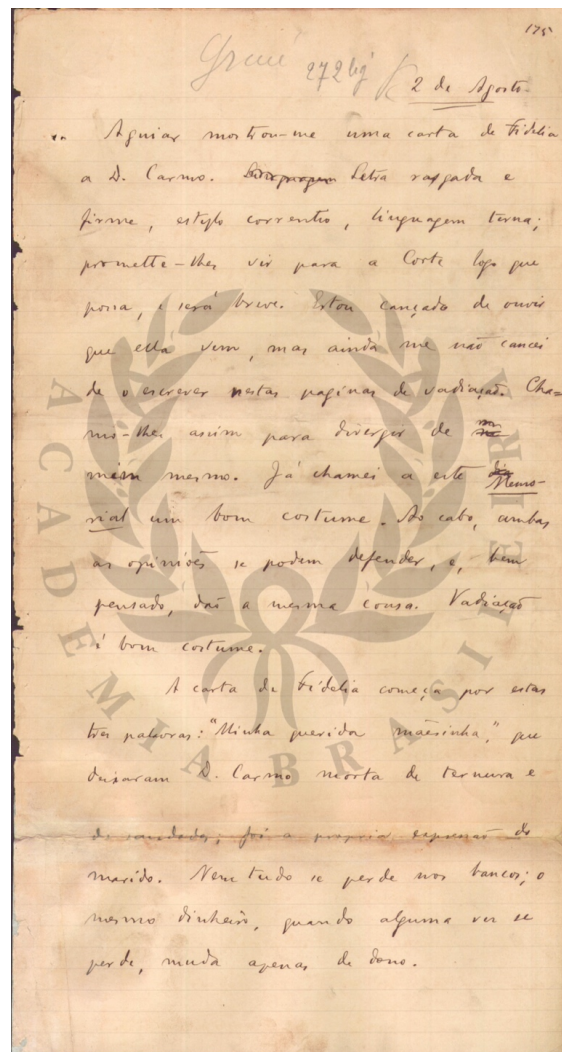 175
272
2 de Agosto
Aguiar mostrou-me uma carta de Fidelia
a D. Carmo. Linguagem Letra rasgada e
firme, estylo correntio, linguagem terna;
promette-lhes vir para a Corte logo que
possa, e será breve. Estou cançado de ouvir
que ella vem, mas ainda me não cancei
de o escrever nestas paginas de vadiação. Cha-
mo-lhes assim para divergir de
mim mesmo. Já chamei a este Memo-
rial um bom costume. Ao cabo, ambas
as opiniões se podem defender, e, bem
pensado, dão a mesma cousa. Vadiação
é bom costume.
A carta de Fidelia começa por estas
tres palavras: "Minha querida mãesinha," que
deixaram D. Carmo morta de ternura e
de saudades; foi a propria expressão do
marido. Nem tudo se perde nos bancos; o
mesmo dinheiro, quando alguma vez se
perde, muda apenas de dono.
ACADEMIA BRASILEIRA